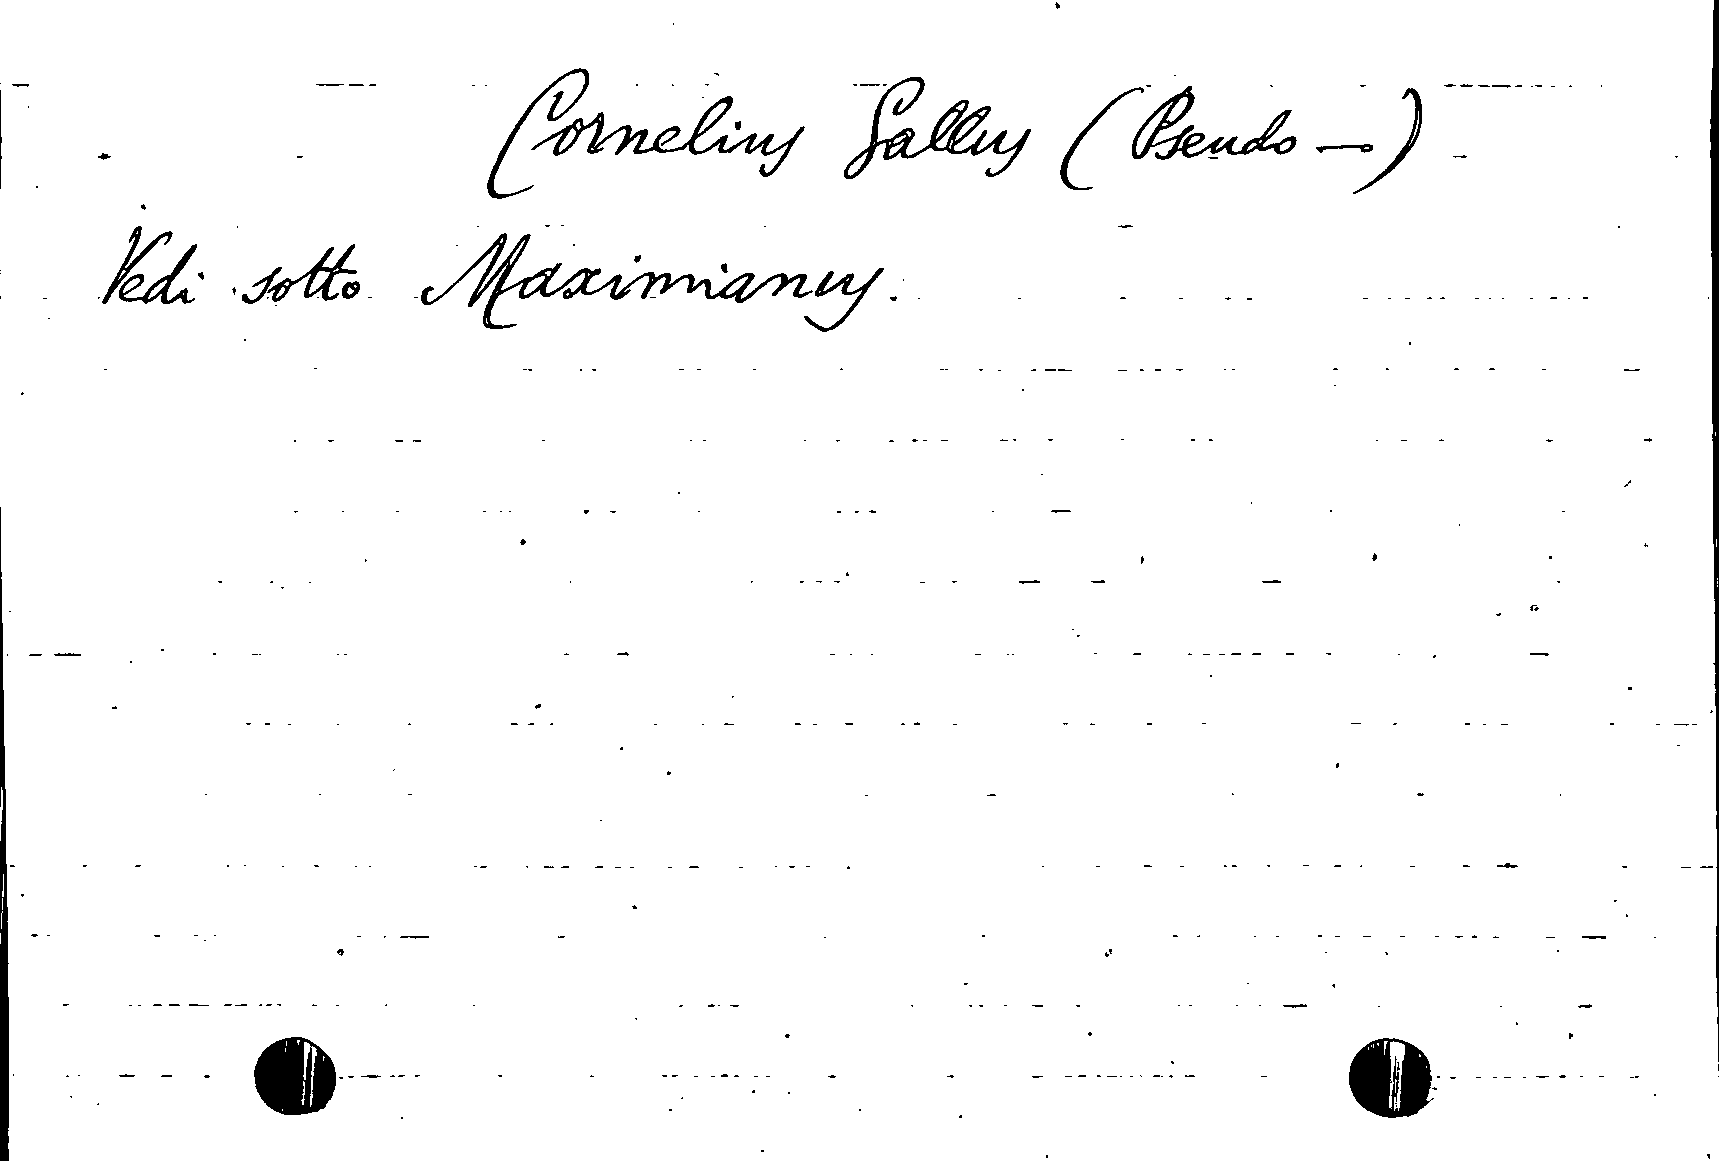 Cornelius Gallus (Pseudo -)
Vedi sotto Maximianus.